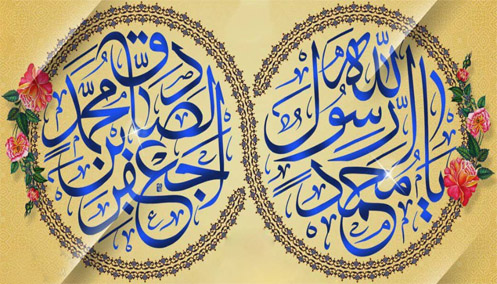 يا محمد رسول الله
جعفر بن محمد الصادق